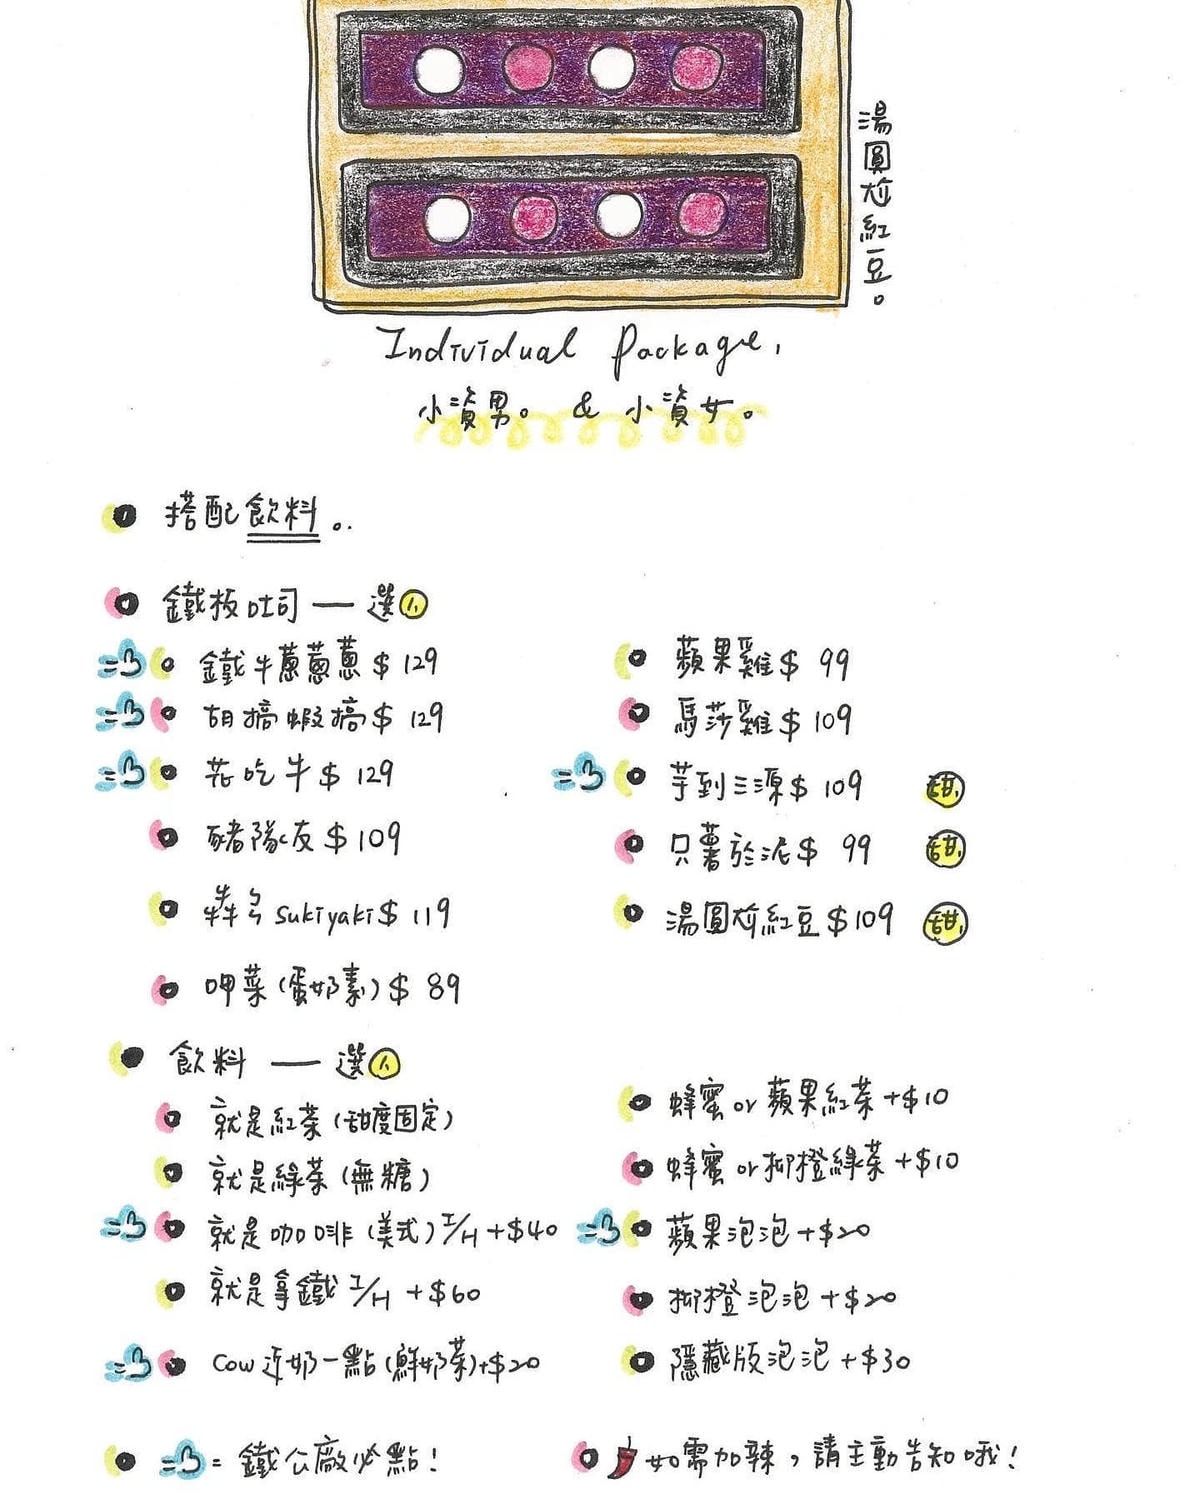 湯圓尬紅豆。
Individual Package,
小資男。 & 小資女。
搭配飲料。
鐵板吐司 — 選1
鐵牛蔥蔥蔥 $ 129
胡搞蝦搞 $ 129
花吃牛 $ 129
豬隊友 $ 109
犇多 sukiyaki $ 119
呷菜 (蛋奶素) $ 89
蘋果雞 $ 99
馬莎雞 $ 109
芋到三源 $ 109 甜
只薯於泥 $ 99 甜
湯圓尬紅豆 $109 甜
飲料 — 選1
就是紅茶 (甜度固定)
就是綠茶 (無糖)
就是咖啡 (美式) I/H +$40
就是拿鐵 I/H +$60
cow近奶一點 (鮮奶茶)+$20
蜂蜜 or 蘋果紅茶 +$10
蜂蜜 or 柳橙綠茶 +$10
蘋果泡泡 +$20
柳橙泡泡 +$20
隱藏版泡泡 +$30
= 鐵公廠必點!
如需加辣，請主動告知哦!